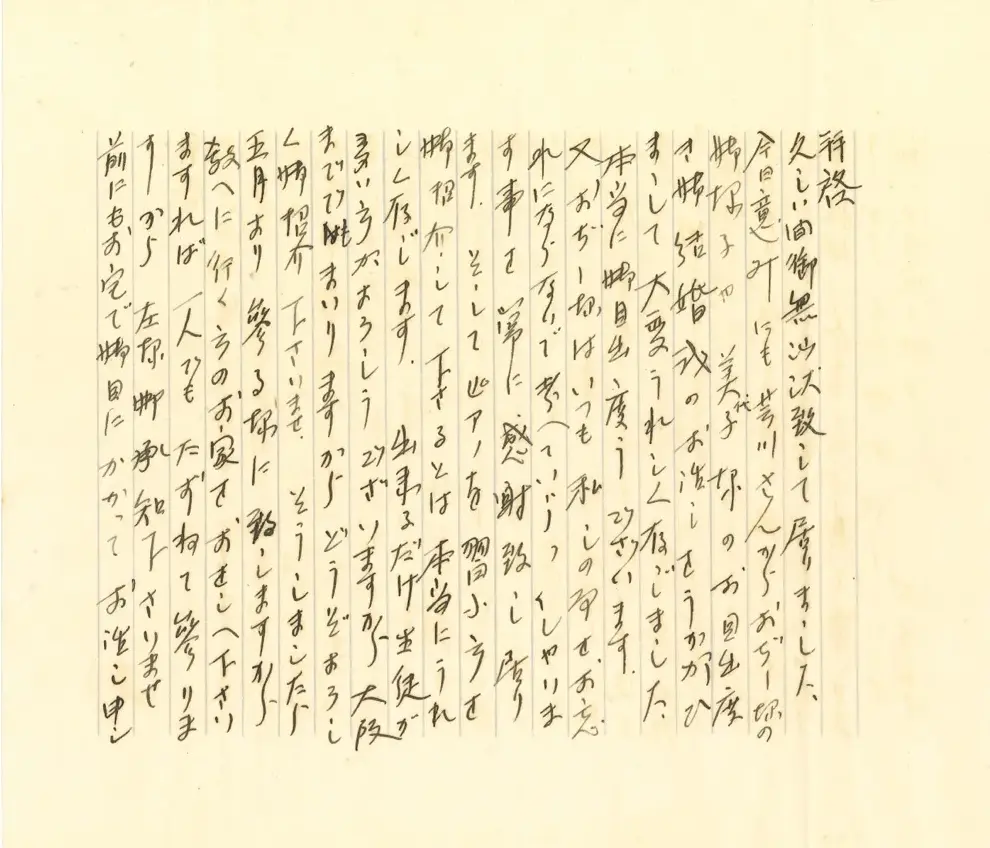 拝啓
久しい間御無沙汰致して居りました、
今日意外にも芸川さんからおぢー様の
御様子や美代子様のお目出度
き御結婚式のお話しをうかがひ
まして大変うれしく存じました、
本当に御目出度うございます。
又おぢー様はいつも私しの事をお忘
れにならないで考へていらっしゃいま
す事を常に感謝致し居り
ます。そしてピアノを習ふ方を
御招介して下さるとは本当にうれ
しく存じます。出来るだけ生徒が
多い方がよろしうございますから大阪
まででもまいりますからどうぞよろし
く御招介下さいませ、そうしましたら
五月より参る様に致しますから
教へに行く方のお家をおをしへ下さい
ますれば一人でもたずねて参りま
すから左様御承知下さいませ
前にもお宅で御目にかかってお話し申し